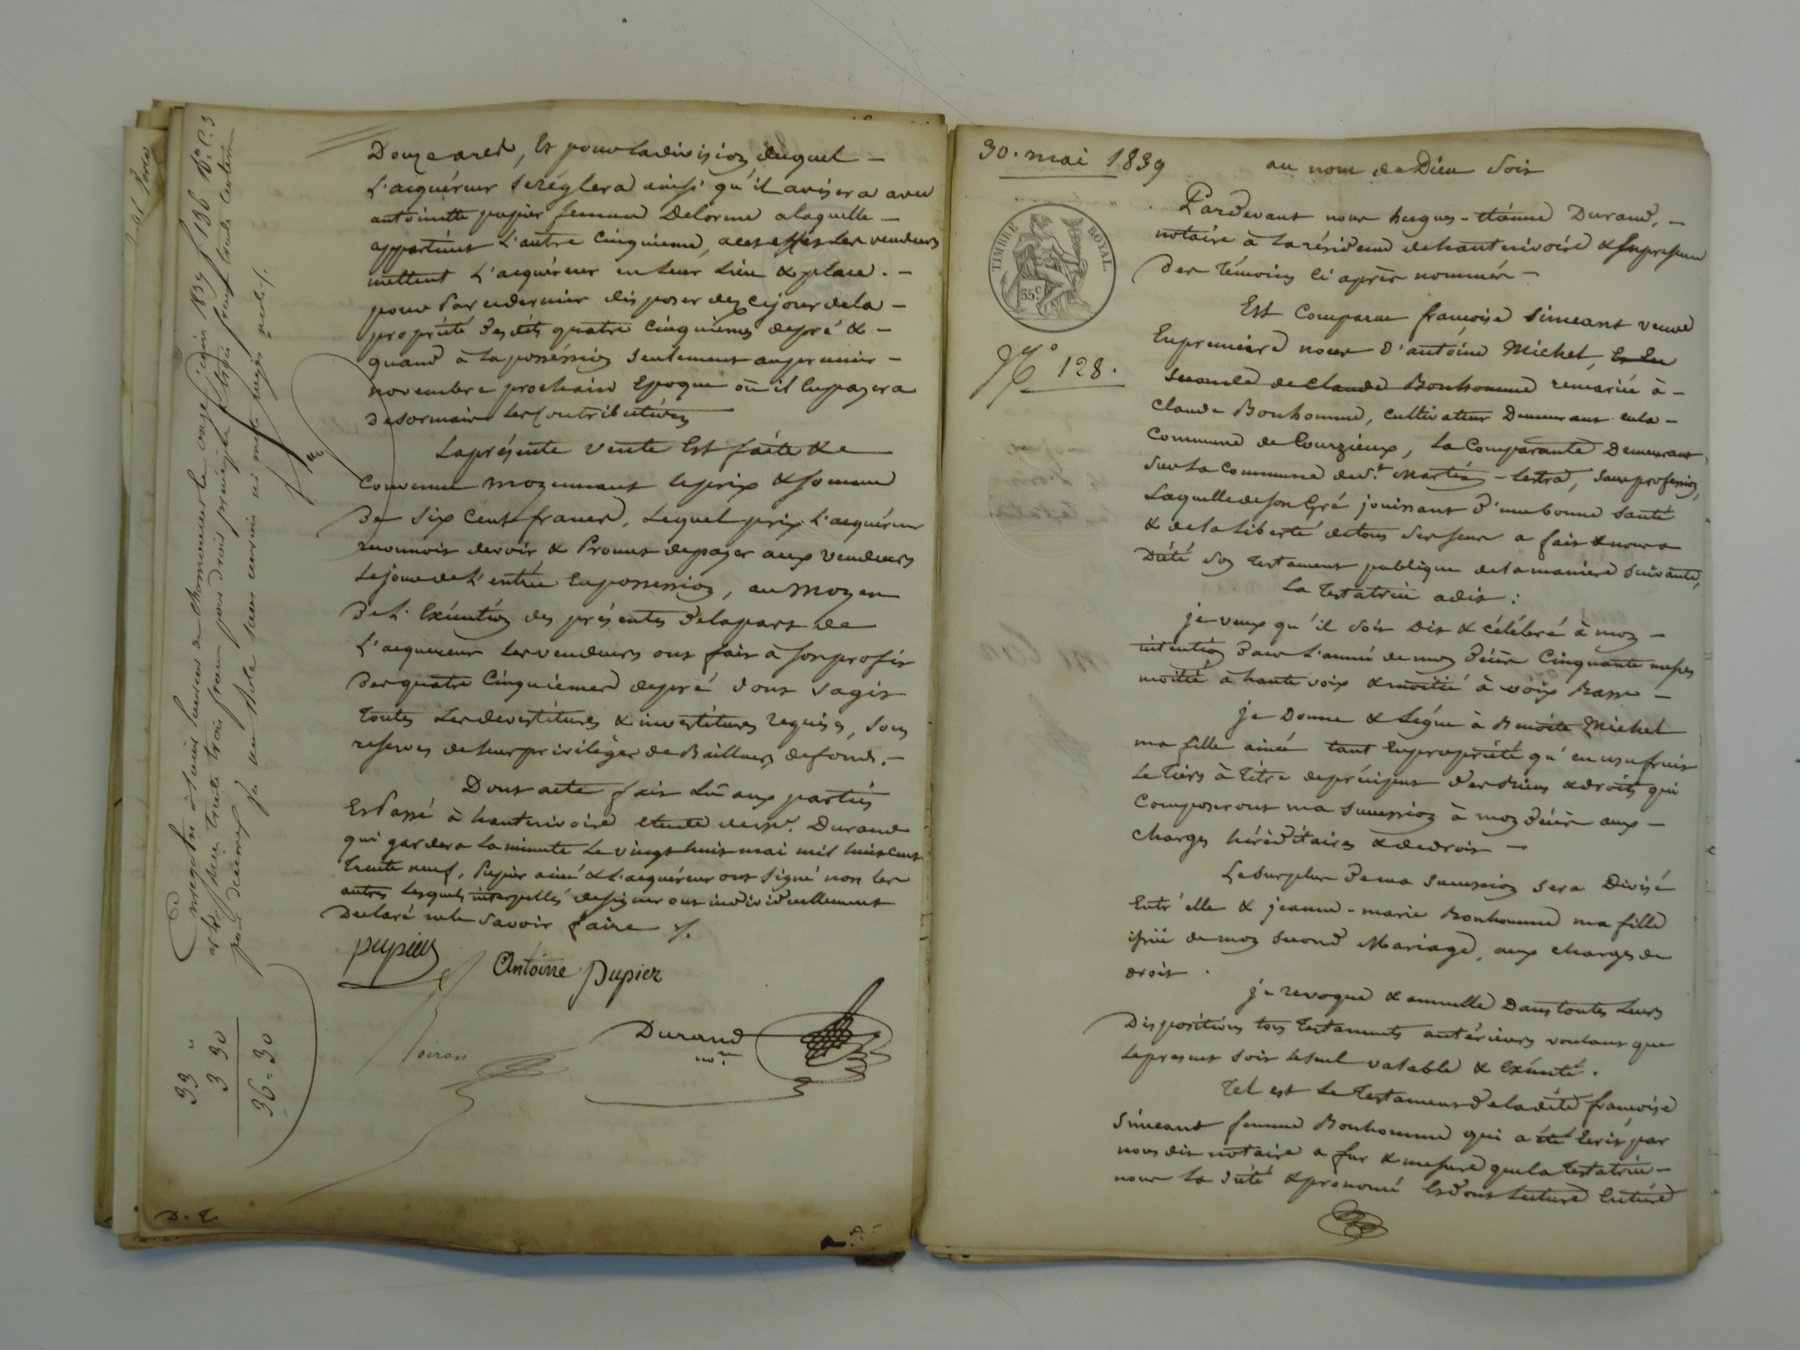 Douze ares, Et pour la division duquel –
L'acquéreur se réglera ainsi qu'il avisera avec
antoinette pupier femme Delorme a laquelle –
appartient L'autre Cinquieme, a cet effet Les vendeurs
mettent L'acquéreur en Leur Lieu & place. –
pour Par ce dernier disposer dez ce jour de la –
propriété Desdits quatre Cinquiemes de pré & –
quand à La possession seulement au premier –
novembre prochain Epoque où il En payera
Desormais Les Contributions
La présente vente Est faite &
Convenue moyennant le prix & somme
De Six Cent francs, Lequel prix L'acquéreur
reconnoit devoir & Promet de payer aux vendeurs
Le jour de L'entrée En possession, au moyen
De L'Exécution des présentes De la part de
L'acquereur Les vendeurs ont fait à son profit
Des quatre Cinquiemes de pré dont s'agit
toutes Les devestitures & investitures requises, sous
reserves de Leur privilège de Bailleurs de fonds. –
Dont acte fait Lû aux parties
Et Passé à hauterivoire etude de Me. Durand
qui gardera La minute Le vingt huit mai mil huit cent
trente neuf, Pupier ainé & L'acquéreur ont signé non Les
autres Lesquels interpellés de signer ont individuellement
Declaré ne le Savoir faire ./.
pupier
Antoine Pupier
Durand
nore.
33 "
3 30
36 = 30
D. L.
30. mai 1839
au nom de Dieu Soit
TIMBRE ROYAL.
35c
No 128.
Pardevant nous hugues-étienne Durand, –
notaire à La résidence de hauterivoire & En presence
Des témoins Ci après nommés –
Est Comparue françoise Simeant veuve
En premiere noces d'antoine Michel Et En
seconde de Claude Bonhomme remariée à –
Claude Bonhomme, Cultivateur Demeurant en la –
Commune de Courzieux, La Comparante Demeurant
sur La Commune de St. Martin – Lestra, sans profession,
Laquelle de son Gré jouissant d'une bonne santé
& de La Liberté de tous ses sens a fait & nous a
Dicté Son testament publique de La maniere suivante,
La testatrice a dit :
je veux qu'il soit Dit & célébré à mon –
intention Dans L'année de mon Décès Cinquante messes
moitié à haute voix & moitié à voix Basse –
je Donne & Légue à Benoite Michel
ma fille ainée tant En propriété qu'en usufruit
Le tiers à titre de préciput Des biens & droits qui
Composeront ma succession à mon décès aux –
Charges héréditaires & de droit –
Le surplus De ma succession sera Divisé
Entr'elle & jeanne-marie Bonhomme ma fille
issue de mon second Mariage, aux charges de
droit.
je revoque & annulle Dans toutes Leurs
Dispositions tous testaments antérieurs voulant que
Le present soit Le seul valable & Exécuté.
Tel est Le testament De La dite françoise
Simeant femme Bonhomme qui a été Ecrit par
nous dit notaire a fur & mesure que La testatrice –
nous L'a dicté & prononcé Et dont Lecture Entiere